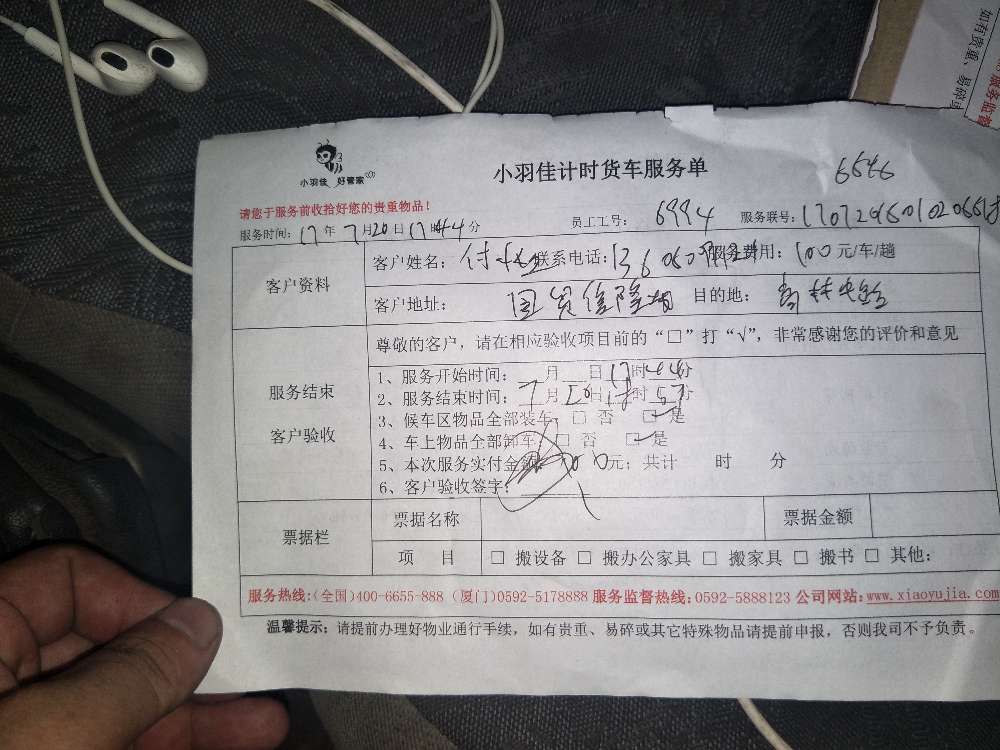 小羽佳 好管家
小羽佳计时货车服务单
6546
请您于服务前收拾好您的贵重物品！
服务时间：17年7月20日17时44分 员工工号：6994 服务联号：
客户资料
客户姓名： 联系电话： 服务费用：100元/车/趟
客户地址： 目的地：
尊敬的客户，请在相应验收项目前的“□”打“√”，非常感谢您的评价和意见
服务结束
客户验收
1、服务开始时间： 月 日17时44分
2、服务结束时间：7月20日18时57分
3、候车区物品全部装车：□ 否 ☑ 是
4、车上物品全部卸车：□ 否 ☑ 是
5、本次服务实付金额：100元；共计 时 分
6、客户验收签字：
票据栏
票据名称 票据金额
项 目 □ 搬设备 □ 搬办公家具 □ 搬家具 □ 搬书 □ 其他：
服务热线：（全国）400-6655-888（厦门）0592-5178888 服务监督热线：0592-5888123 公司网站：www.xiaoyujia.com
温馨提示：请提前办理好物业通行手续，如有贵重、易碎或其它特殊物品请提前申报，否则我司不予负责。
如有贵重、易碎或
服务监督